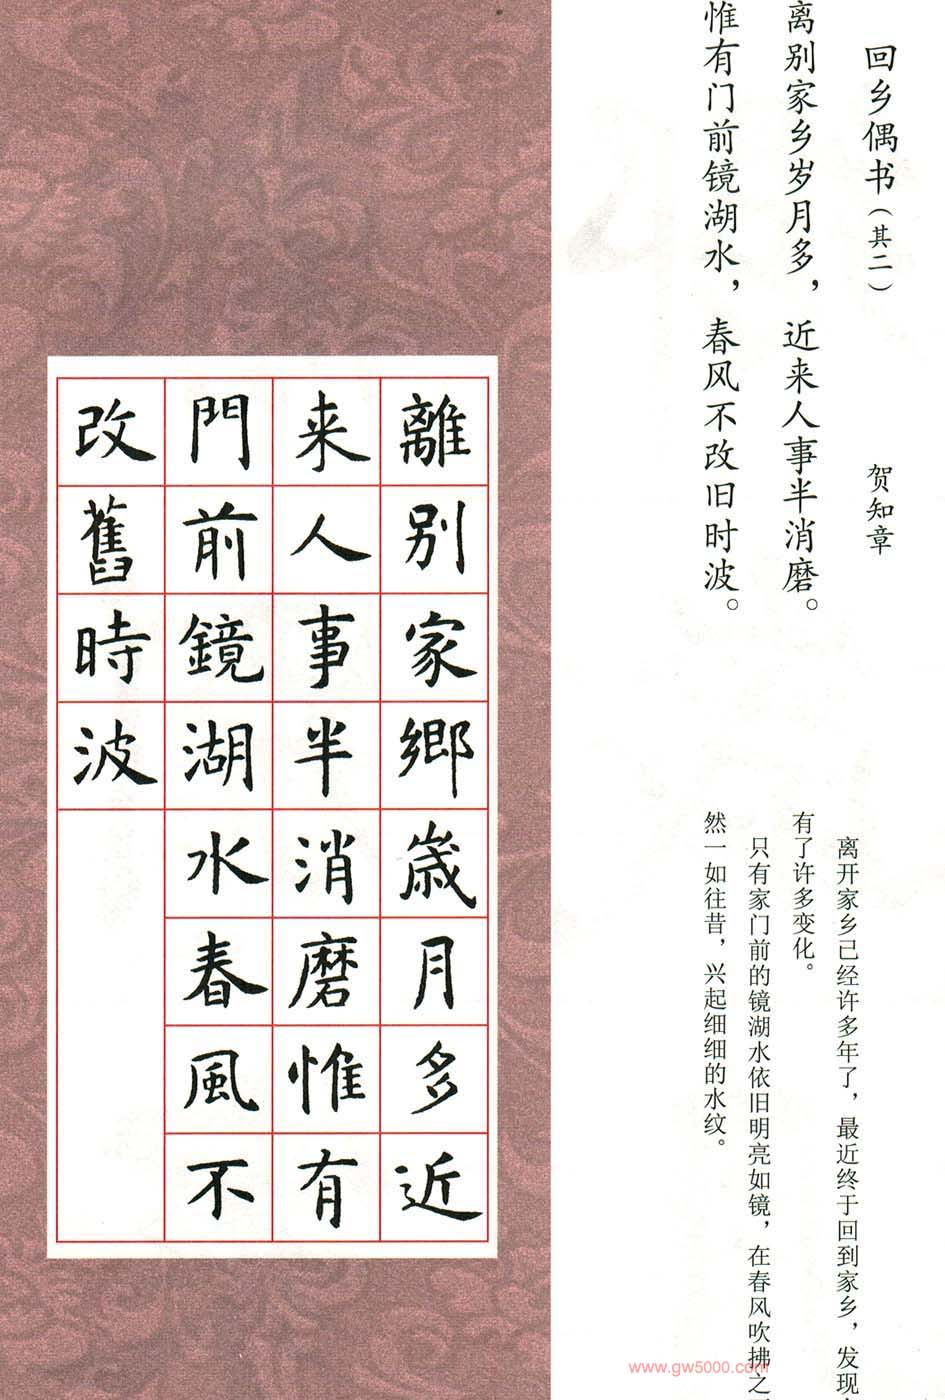 回乡偶书（其二）
贺知章
离别家乡岁月多，近来人事半消磨。
惟有门前镜湖水，春风不改旧时波。
离开家乡已经许多年了，最近终于回到家乡，发现
有了许多变化。
只有家门前的镜湖水依旧明亮如镜，在春风吹拂之
然一如往昔，兴起细细的水纹。
離别家鄉歲月多近
来人事半消磨惟有
門前鏡湖水春風不
改舊時波
www.gw5000.com